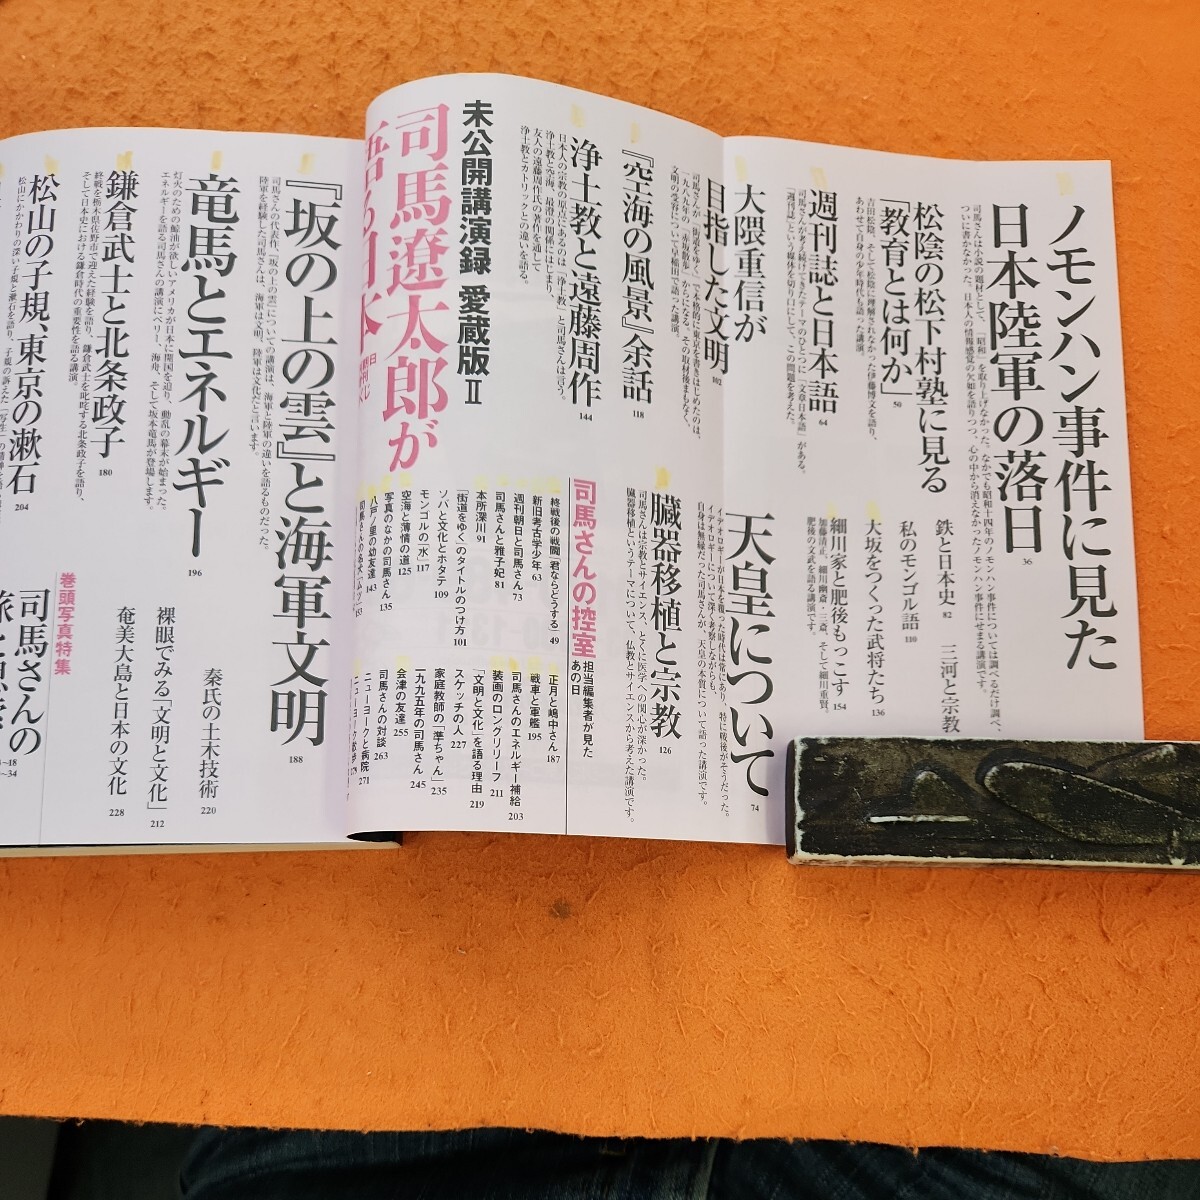 ノモンハン事件に見た
日本陸軍の落日
36
司馬さんは小説の題材として、「昭和」を取り上げなかった。なかでも昭和十四年のノモンハン事件については調べるだけ調べ、
ついに書かなかった。日本人の情報感覚の欠如を語りつつ、心の中から消えなかったノモンハン事件にせまる講演です。
松陰の松下村塾に見る
「教育とは何か」
50
吉田松陰、そして松陰に理解されなかった伊藤博文を語り、
あわせて自身の少年時代も語った講演。
週刊誌と日本語
64
司馬さんが考え続けてきたテーマのひとつに「文章日本語」がある。
「週刊誌」という媒体を切り口にして、この問題を考えた。
鉄と日本史 82
三河と宗教
私のモンゴル語 110
大坂をつくった武将たち 136
細川家と肥後もっこす 154
加藤清正、細川幽斎・三斎、そして細川重賢。
肥後の文武を語る講演です。
天皇について
74
イデオロギーが日本を覆った時代は常にあり、特に戦後がそうだった。
イデオロギーについて深く考察しながらも、
自身は無縁だった司馬さんが、天皇の本質について語った講演です。
大隈重信が
目指した文明
102
司馬さんが『街道をゆく』で本格的に東京を書きはじめたのは、
一九八九年の「赤坂散歩」からになる。その取材後まもなく、
文明の受容について早稲田で語った講演。
『空海の風景』余話
118
浄土教と遠藤周作
144
日本人の宗教の原点にあるのは「浄土教」と司馬さんは言う。
浄土教と空海、最澄の関係にはじまり、
友人の遠藤周作氏の著作を通して
浄土教とカトリックとの違いを語る。
臓器移植と宗教
126
司馬さんは宗教とサイエンス、とくに医学への関心が深かった。
臓器移植というテーマについて、仏教とサイエンスから考えた講演です。
未公開講演録 愛蔵版 II
司馬遼太郎が
語る日本
司馬さんの控室
担当編集者が見た
あの日
終戦後の戦闘「君ならどうする」 49
新旧考古学少年 63
週刊朝日と司馬さん 73
司馬さんと雅子妃 81
本所深川 91
「街道をゆく」のタイトルのつけ方 101
ソバと文化とホタテ 109
モンゴルの「水」 117
空海と薄情の道 125
写真のなかの司馬さん 135
八戸ノ里の幼友達 143
司馬さんの名犬「ムツ」 153
正月と嶋中さん 187
戦車と軍艦 195
司馬さんのエネルギー補給 203
装画のロングリリーフ 211
「文明と文化」を語る理由 219
スケッチの人 227
家庭教師の「準ちゃん」 235
一九九五年の司馬さん 245
会津の友達 255
司馬さんの対談 263
ニューヨークと病院 271
『坂の上の雲』と海軍文明
188
司馬さんの代表作、『坂の上の雲』についての講演は、海軍と陸軍の違いを語るものだった。
陸軍を経験した司馬さんは、海軍は文明、陸軍は文化だと言います。
竜馬とエネルギー
196
灯火のための鯨油が欲しいアメリカが日本に開国を迫り、動乱の幕末が始まった。
エネルギーを語る司馬さんの講演にペリー、海舟、そして坂本竜馬が登場します。
鎌倉武士と北条政子
180
終戦を栃木県佐野市で迎えた経験を語り、鎌倉武士を叱咤する北条政子を語り、
そして日本史における鎌倉時代の重要性を語る講演。
松山の子規、東京の漱石
204
秦氏の土木技術 220
裸眼でみる「文明と文化」 212
奄美大島と日本の文化 228
巻頭写真特集
司馬さんの